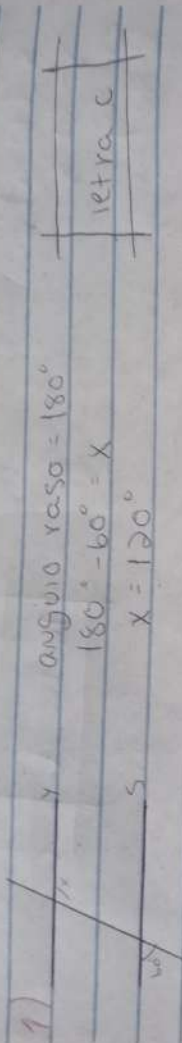 1)
r
x
angulo raso = 180°
180° - 60° = x
x = 120°
s
60°
letra c